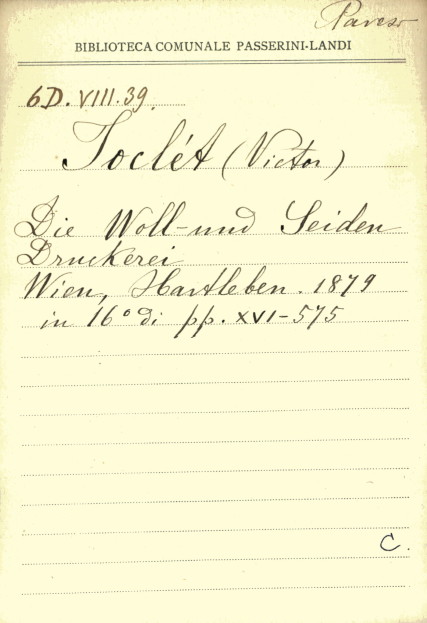 Paveso
BIBLIOTECA COMUNALE PASSERINI-LANDI
6D. VIII. 39.
Joclét (Victor)
Die Woll-und Seiden
Druckerei
Wien, Hartleben. 1879
in 16° di pp. XVI-575
C.